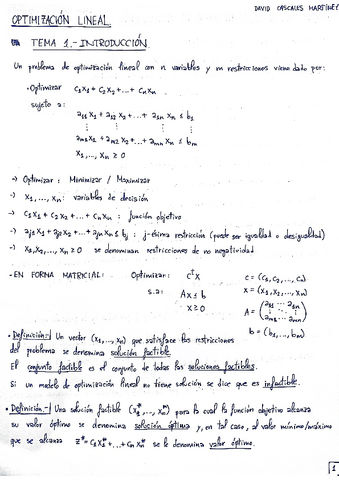 DAVID CASCALES MARTÍNEZ
OPTIMIZACIÓN LINEAL
TEMA 1.- INTRODUCCIÓN.
Un problema de optimización lineal con n variables y m restricciones viene dado por:
· Optimizar c₁x₁ + c₂x₂ + ... + cₙxₙ
sujeto a:
a₁₁x₁ + a₁₂x₂ + ... + a₁ₙxₙ ≤ b₁
⋮ ⋮ ⋮
aₘ₁x₁ + aₘ₂x₂ + ... + aₘₙxₙ ≤ bₘ
x₁, ..., xₙ ≥ 0
→ Optimizar : Minimizar / Maximizar
→ x₁, ..., xₙ : variables de decisión
→ c₁x₁ + c₂x₂ + ... + cₙxₙ : función objetivo
→ aⱼ₁x₁ + aⱼ₂x₂ + ... + aⱼₙxₙ ≤ bⱼ : j-ésima restricción (puede ser igualdad o desigualdad)
→ x₁, x₂, ..., xₙ ≥ 0 se denominan restricciones de no negatividad
- EN FORMA MATRICIAL: Optimizar: cᵗx c = (c₁, c₂, ..., cₙ)
s.a: Ax ≤ b x = (x₁, x₂, ..., xₙ)
x ≥ 0 A = (a₁₁ ... a₁ₙ
⋮ ⋮
aₘ₁ ... aₘₙ)
b = (b₁, ..., bₘ)
· Definición.- Un vector (x₁, ..., xₙ) que satisface las restricciones
del problema se denomina solución factible.
El conjunto factible es el conjunto de todas las soluciones factibles.
Si un modelo de optimización lineal no tiene solución se dice que es infactible.
· Definición.- Una solución factible (x₁*, ..., xₙ*) para la cual la función objetivo alcanza
su valor óptimo se denomina solución óptima y, en tal caso, al valor mínimo/máximo
que se alcanza z* = c₁x₁* + ... + cₙxₙ* se le denomina valor óptimo.
1